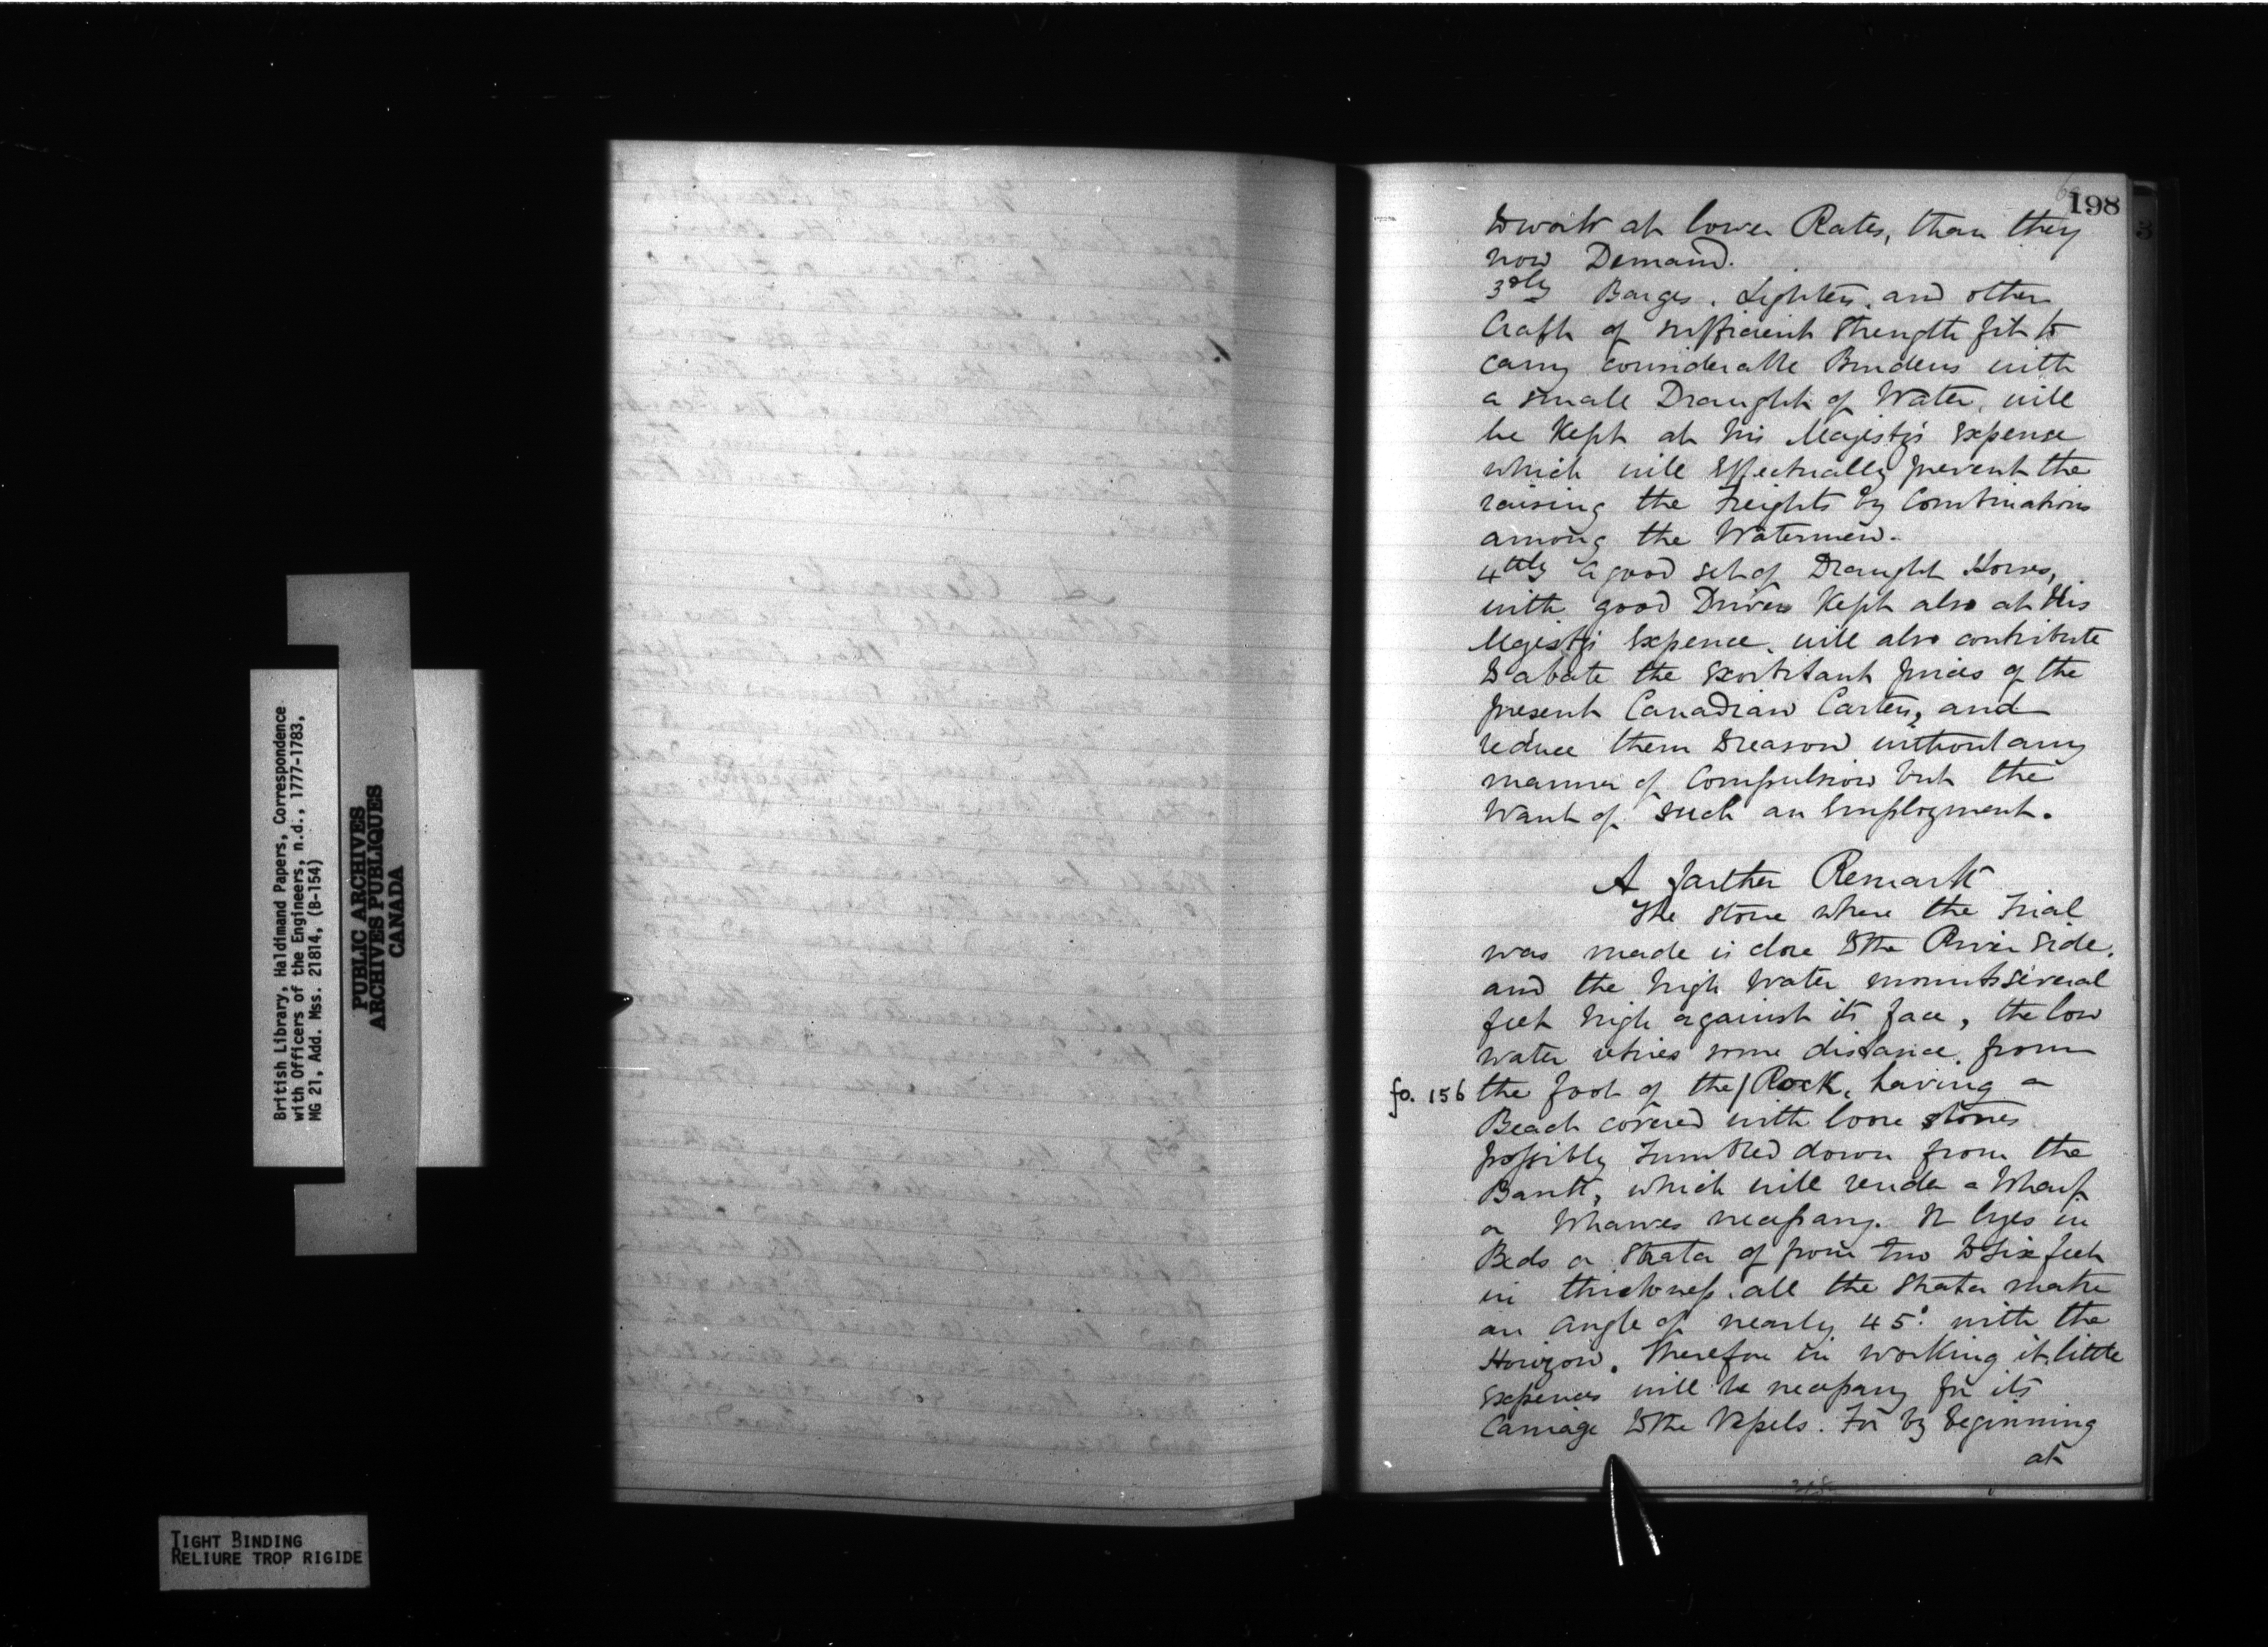 198
to work at lower Rates, than they
now Demand.
3dly Barges, Lighters, and other
Craft of sufficient Strength fit to
carry considerable Burdens with
a small Draught of Water, will
be Kept at his Majesty's Expense
which will Effectually prevent the
raising the Freights by Combinations
among the Watermen.
4thly a good set of Draught Horses,
with good Drivers Kept also at His
Majesty's Expence, will also contribute
to abate the Exorbitant prices of the
present Canadian Carters, and
reduce them to reason without any
manner of Compulsion but the
Want of such an Employment.
A farther Remark
The Stone where the Trial
was made is close to the River Side,
and the high Water mounts several
feet high against its face, the low
water retires some distance from
fo. 156 the foot of the/Rock, having a
Beach covered with loose stones
possibly Tumbled down from the
Bank, which will render a Wharf
or Wharves necessary. It lyes in
Beds or Strata of from two to Six feet
in thickness. all the Strata make
an angle of nearly 45° with the
Horizon. Therefore in working it little
Expences will be necessary for its
Carriage to the Vessels. For by beginning
at
British Library, Haldimand Papers, Correspondence
with Officers of the Engineers, n.d., 1777-1783,
MG 21, Add. Mss. 21814, (B-154)
PUBLIC ARCHIVES
ARCHIVES PUBLIQUES
CANADA
TIGHT BINDING
RELIURE TROP RIGIDE